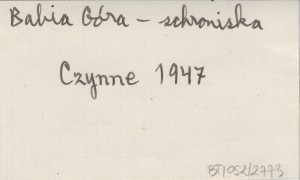 Babia Góra - schroniska
Czynne 1947
BT/052/2773